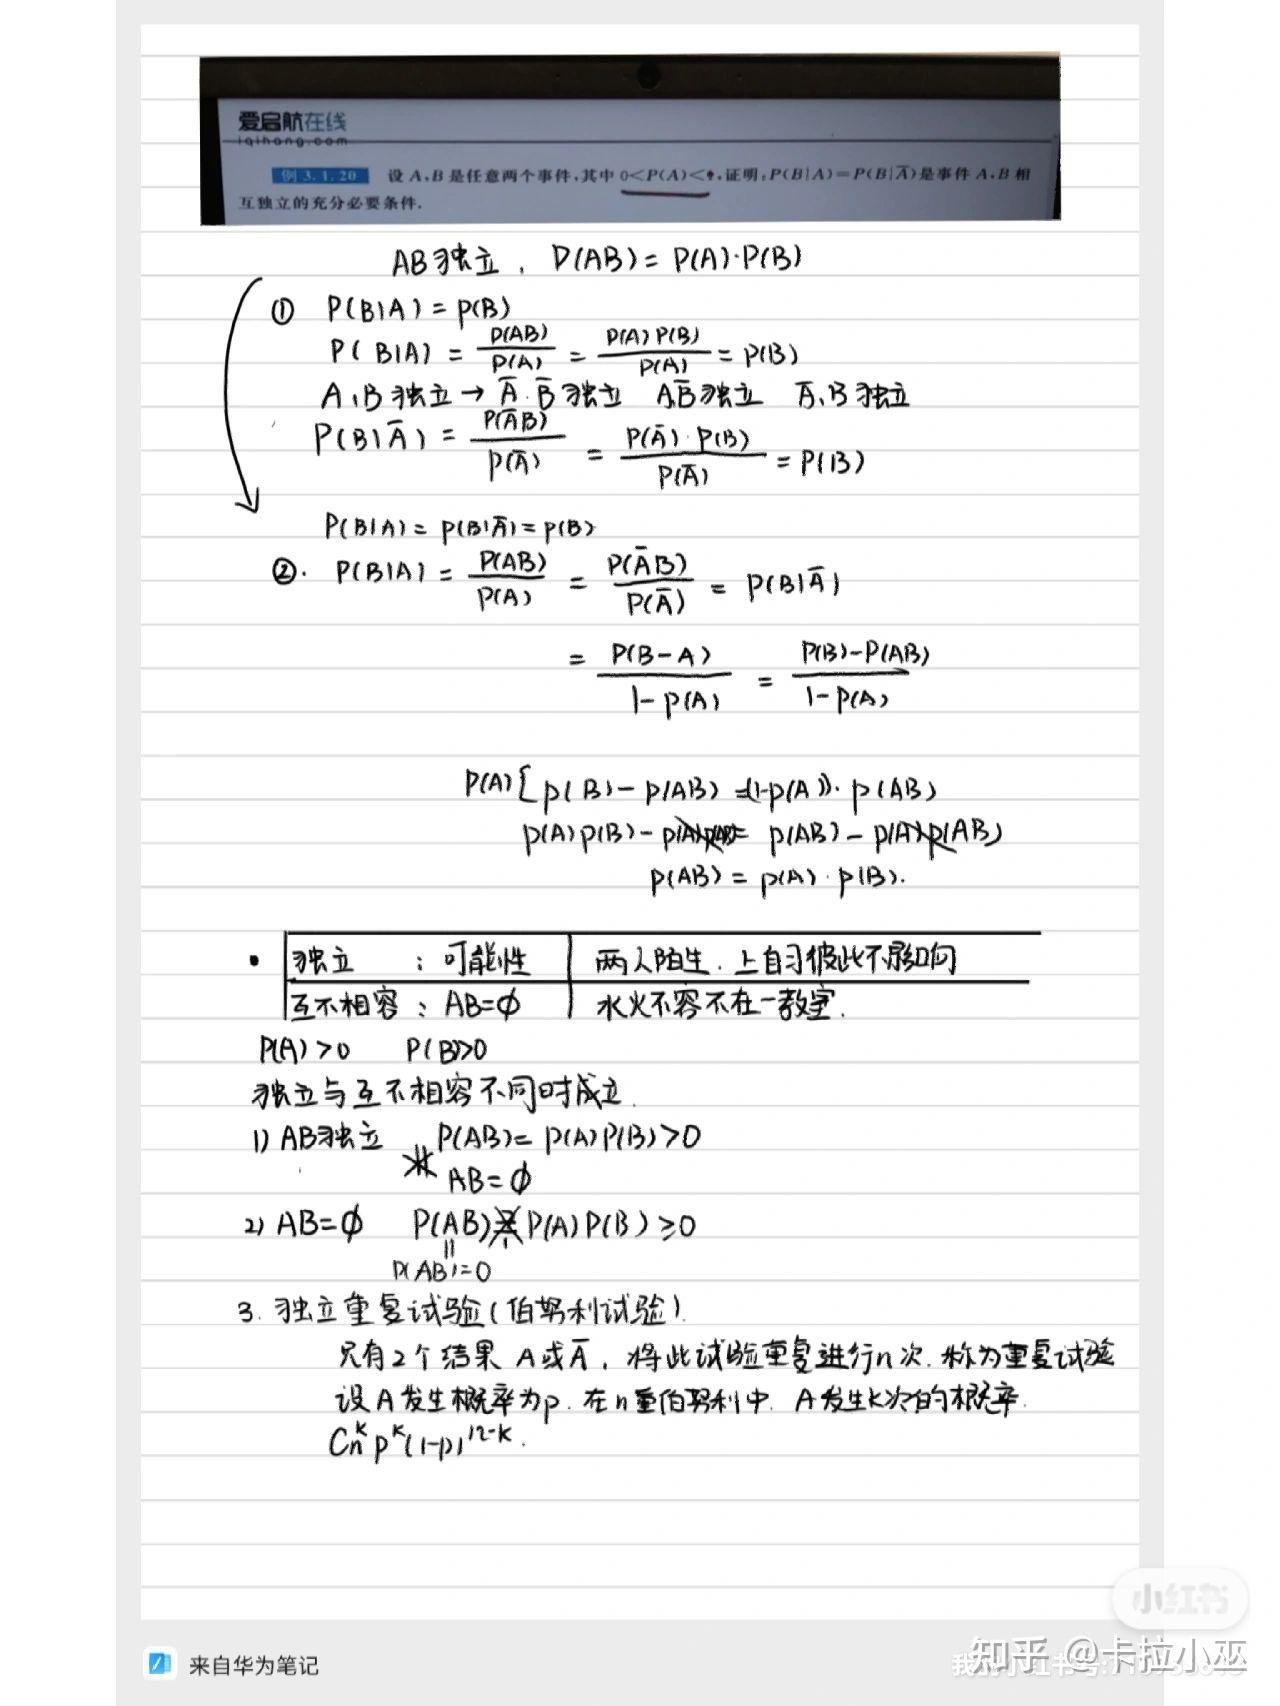 爱启航在线
iqihang.com
例 3.1.20 设 A,B 是任意两个事件,其中 0<P(A)<1,证明:P(B|A)=P(B|A̅)是事件 A,B 相
互独立的充分必要条件.
AB独立, P(AB)= P(A)·P(B)
① P(B|A)=P(B)
P(B|A) = P(AB)/P(A) = P(A)P(B)/P(A) = P(B)
A,B独立→A̅.B̅独立 A,B̅独立 A̅,B独立
P(B|A̅) = P(A̅B)/P(A̅) = P(A̅)·P(B)/P(A̅) = P(B)
P(B|A)=P(B|A̅)=P(B)
②. P(B|A) = P(AB)/P(A) = P(A̅B)/P(A̅) = P(B|A̅)
= P(B-A)/1-P(A) = P(B)-P(AB)/1-P(A)
P(A)[P(B)-P(AB)=(1-P(A))·P(AB)
P(A)P(B)-P(A)P(AB)=P(AB)-P(A)P(AB)
P(AB)=P(A)·P(B).
• 独立 : 可能性 两人陌生.上自习彼此不影响
互不相容: AB=∅ 水火不容不在一教室.
P(A)>0 P(B)>0
独立与互不相容不同时成立.
1) AB独立 P(AB)=P(A)P(B)>0
AB=∅
2) AB=∅ P(AB)≠P(A)P(B)≥0
P(AB)=0
3.独立重复试验(伯努利试验).
只有2个结果 A或A̅,将此试验重复进行n次.称为重复试验
设A发生概率为p.在n重伯努利中.A发生k次的概率.
Cn^k p^k(1-p)^n-k.
小红书
来自华为笔记
知乎 @卡拉小巫